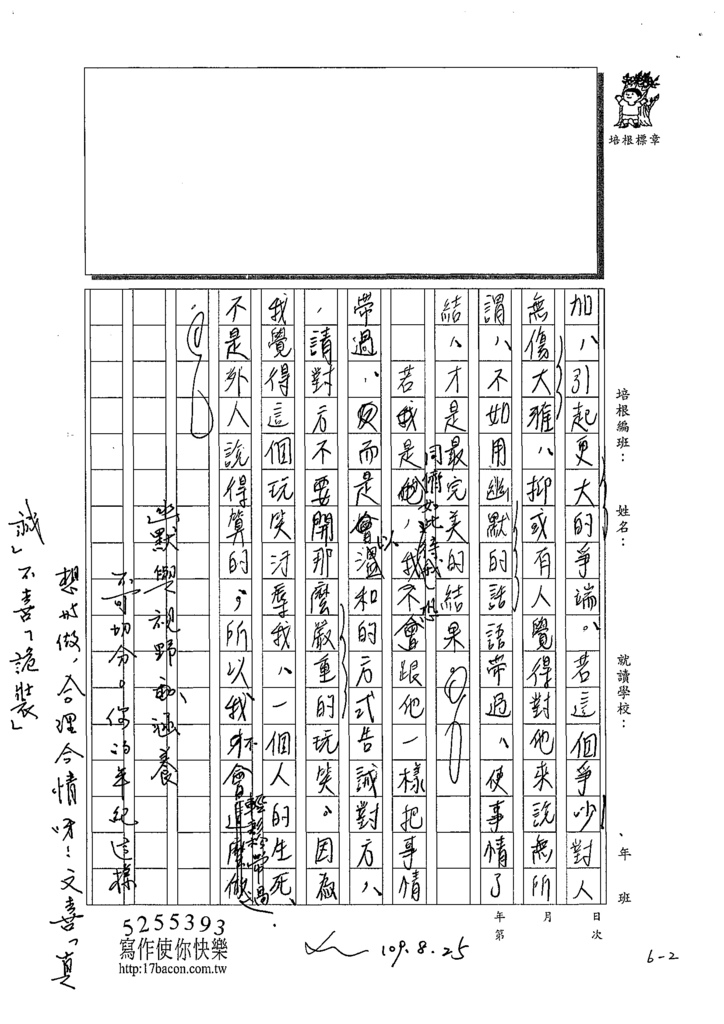 培根標章
培根編班：
姓名：
就讀學校：
、年 班
加，引起更大的爭端。若這個爭吵對人
無傷大雅，抑或有人覺得對他來說無所
謂，不如用幽默的話語帶過，使事情了
結，才是最完美的結果。
若我是他，我不會跟他一樣把事情
同儕如此待我，想
帶過，反而是會以溫和的方式告誡對方，
，請對方不要開那麼嚴重的玩笑。因為
我覺得這個玩笑污辱我，一個人的生死、
不是外人說得算的，所以我不會這麼做
輕輕帶過
。
幽默與視野、涵養
不可切分。你的年紀這樣
想如做，合理合情呀！文喜「真
誠」不喜「詭裝」
日 月 年
次 第
5255393
寫作使你快樂
http:17bacon.com.tw
109.8.25
6-2